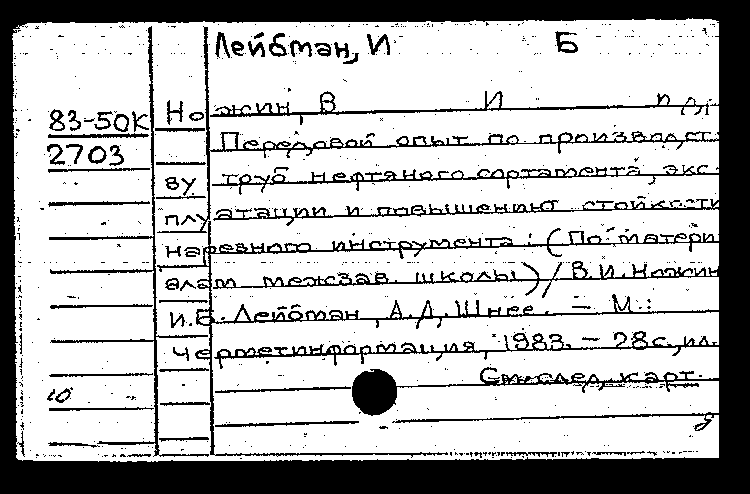 Лейбман, И Б
83-50К Ножин, В И п др.
2703 Передовой опыт по производст-
ву труб нефтяного сортамента, экс-
плуатации и повышению стойкости
нарезного инструмента: (По матери-
алам межзав. школы) / В.И. Ножин,
И.Б. Лейбман, А.Д. Шнее. – М.:
Черметинформация, 1983. – 28с., ил.
См. след. карт.